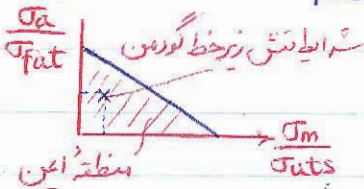 σa
σfat
شرایط تنش زیر خط گودمن
σm
σuts
منطقهٔ امن